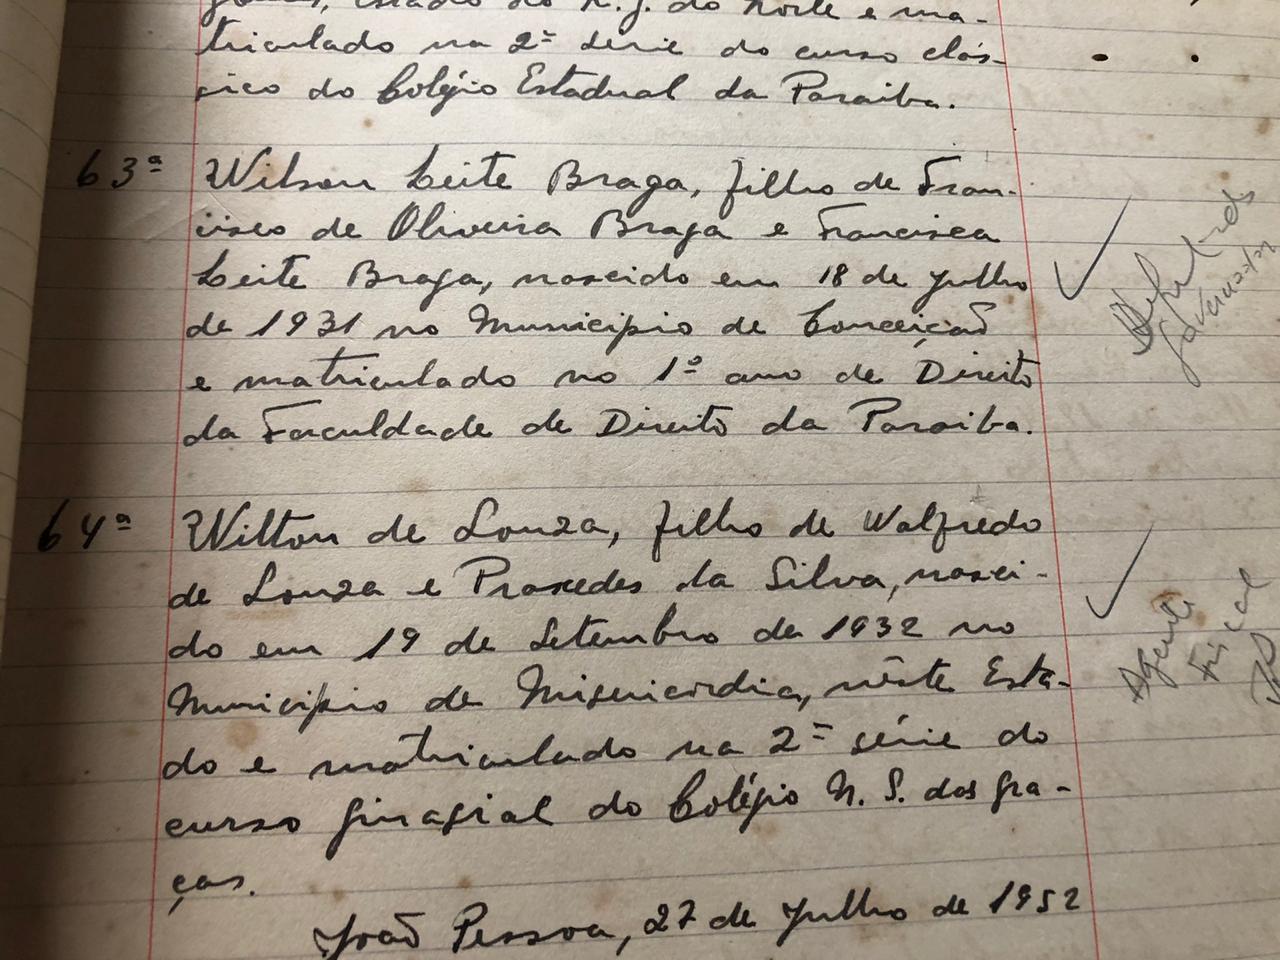 Estado do R. G. do Norte e ma-
triculado na 2ª série do curso clás-
sico do Colégio Estadual da Paraiba.
63ª Wilson Leite Braga, filho de Fran-
cisco de Oliveira Braga e Francisca
Leite Braga, nascido em 18 de Julho
de 1931 no Municipio de Conceição
e matriculado no 1º ano de Direito
da Faculdade de Direito da Paraiba.
Deputado
Governador
64ª Wilton de Souza, filho de Walfredo
de Souza e Praxedes da Silva, nasci-
do em 19 de Setembro de 1932 no
Municipio de Misericórdia, nêste Esta-
do e matriculado na 2ª série do
curso ginasial do Colégio N. S. das Gra-
ças.
Agente
Fiscal
João Pessoa, 27 de Julho de 1952